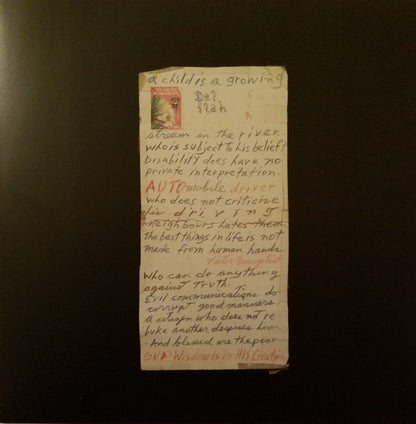 a child is a growing
stream in the river
who is subject to his beliefs
Disability does have no
private interpretation
AUTOmobile driver
who does not criticise
his driving
neighbours hates them
the best things in life is not
made from human hands
Victor Evangelist
who can do anything
against truth
Evil communications do
corrupt good manners
A citizen who does not re
buke another despises him
And blessed are the poor
GOD' Wisdom is in HIS Creation